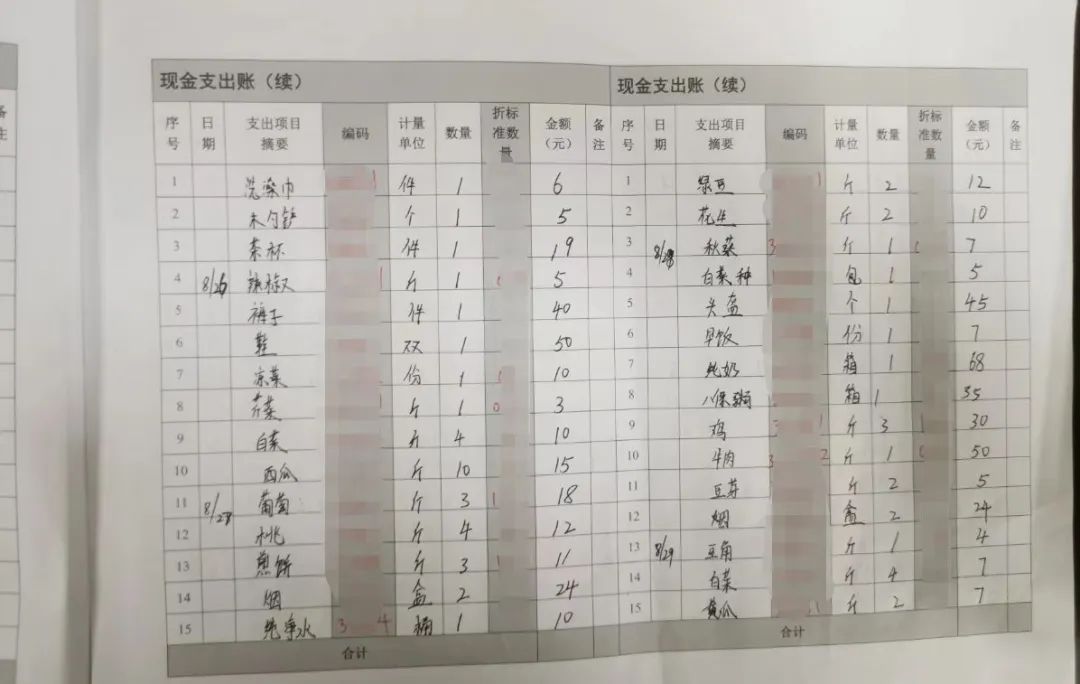 现金支出账（续）
序号 日期 支出项目摘要 编码 计量单位 数量 折标准数量 金额（元） 备注
1 洗澡巾 件 1 6
2 木勺铲 个 1 5
3 茶杯 件 1 19
4 8/26 辣椒 斤 1 5
5 裤子 件 1 40
6 鞋 双 1 50
7 凉菜 份 1 10
8 芹菜 斤 1 0 3
9 白菜 斤 4 10
10 西瓜 斤 10 15
11 8/27 葡萄 斤 3 18
12 桃 斤 4 12
13 煎饼 斤 3 11
14 烟 盒 2 24
15 纯净水 3 4 桶 1 10
合计
现金支出账（续）
序号 日期 支出项目摘要 编码 计量单位 数量 折标准数量 金额（元） 备注
1 绿豆 斤 2 12
2 花生 斤 2 10
3 8/28 3 斤 1 7
4 白菜种 包 1 5
5 头盔 个 1 45
6 早饭 份 1 7
7 纯奶 箱 1 68
8 八保粥 箱 1 35
9 鸡 3 1 斤 3 30
10 牛肉 3 2 斤 1 50
11 豆芽 斤 2 5
12 烟 盒 2 24
13 8/29 豆角 斤 1 4
14 白菜 斤 4 7
15 黄瓜 斤 2 7
合计